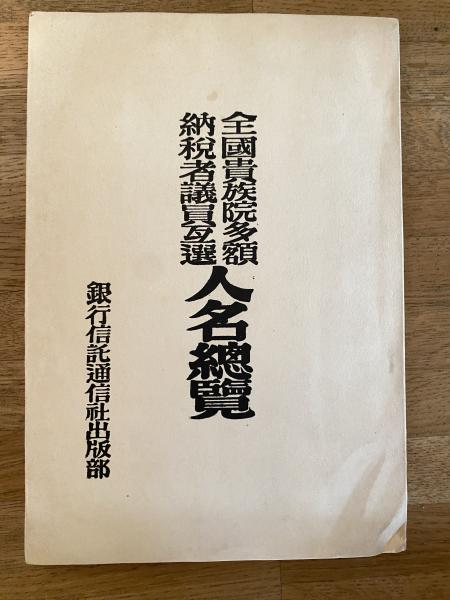 全國貴族院多額
納稅者議員互選
人名總覽
銀行信託通信社出版部